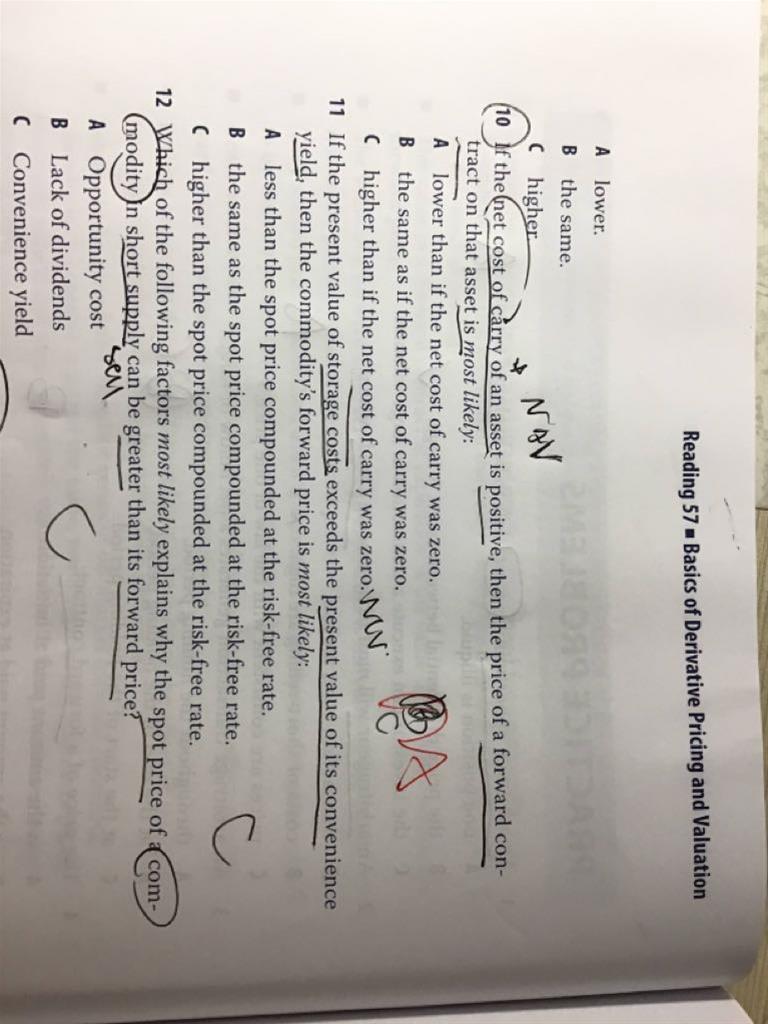 Reading 57 ■ Basics of Derivative Pricing and Valuation
A lower.
B the same.
C higher.
10 If the net cost of carry of an asset is positive, then the price of a forward con-
tract on that asset is most likely:
A lower than if the net cost of carry was zero.
B the same as if the net cost of carry was zero.
C higher than if the net cost of carry was zero.
C
A
11 If the present value of storage costs exceeds the present value of its convenience
yield, then the commodity's forward price is most likely:
A less than the spot price compounded at the risk-free rate.
B the same as the spot price compounded at the risk-free rate.
C higher than the spot price compounded at the risk-free rate.
C
12 Which of the following factors most likely explains why the spot price of a com-
modity in short supply can be greater than its forward price?
A Opportunity cost
B Lack of dividends
C Convenience yield
C